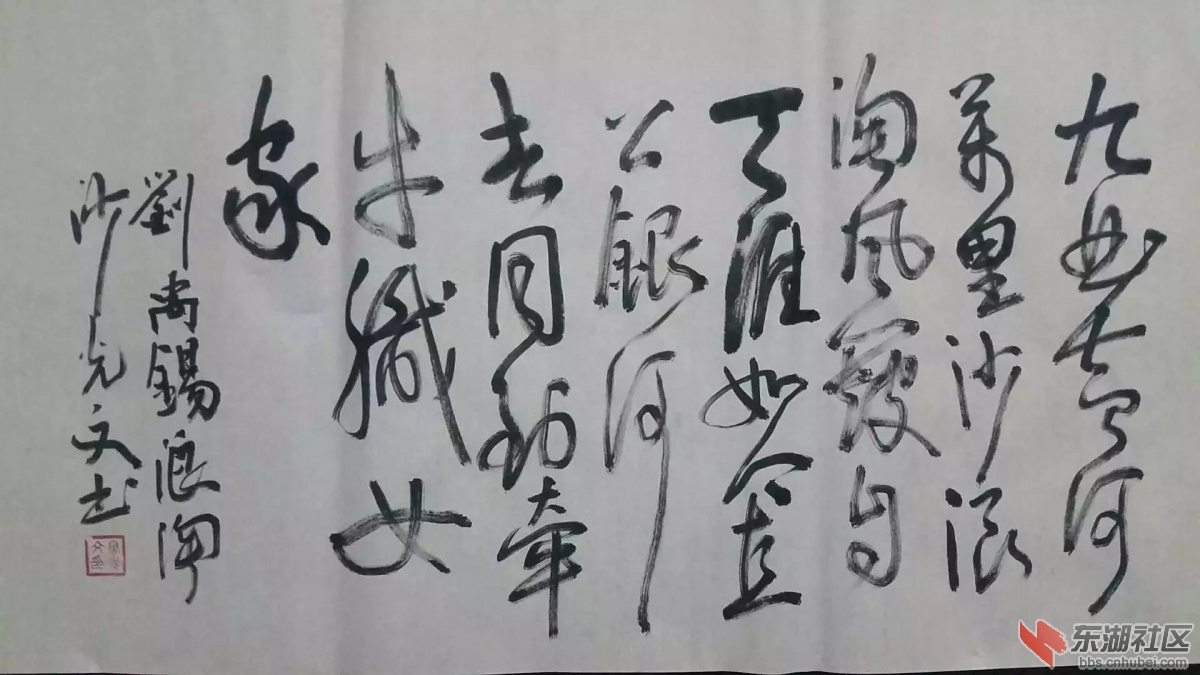 九曲黄河
萬里沙浪
淘风簸自
天涯如今直
上銀河
去同到牵
牛織女
家
劉禹錫浪淘
沙光文书
东湖社区
bbs.cnhubei.com